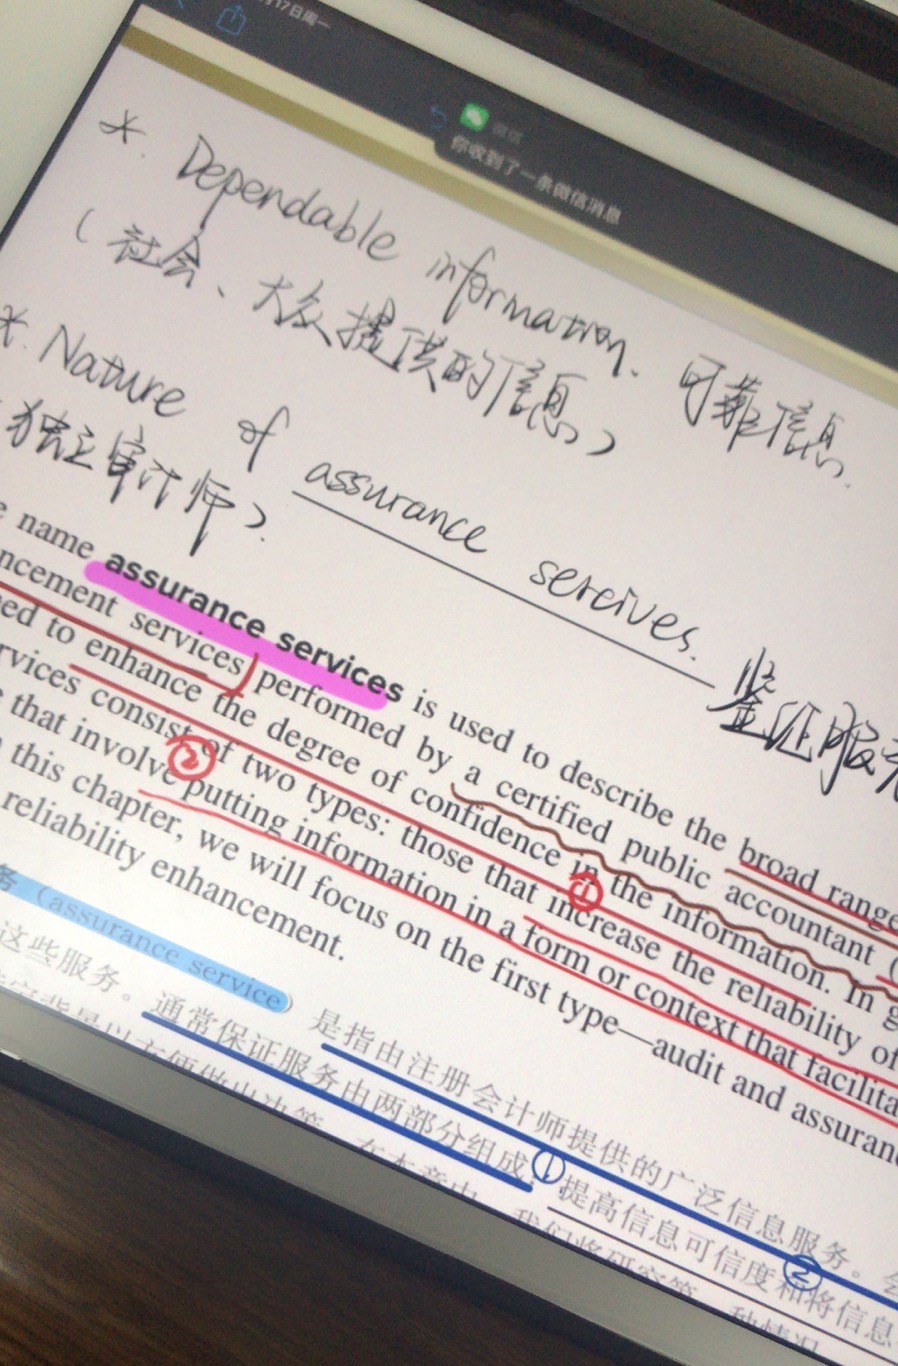 月17日周一
微信
你收到了一条微信消息
*. Dependable information. 可靠信息.
(社会、大众提供的信息)
*. Nature of assurance sercives. 鉴证服务
独立审计师).
name assurance services is used to describe the broad range
ncement services) performed by a certified public accountant (
ed to enhance the degree of confidence in the information. In g
rvices consist of two types: those that increase the reliability of
that involve putting information in a form or context that facilita
this chapter, we will focus on the first type—audit and assuran
reliability enhancement.
② ①
务(assurance service) 是指由注册会计师提供的广泛信息服务。
这些服务。通常保证服务由两部分组成:①提高信息可信度和②将信息
以方便做出决策。在本章中,我们将研究第一种情况